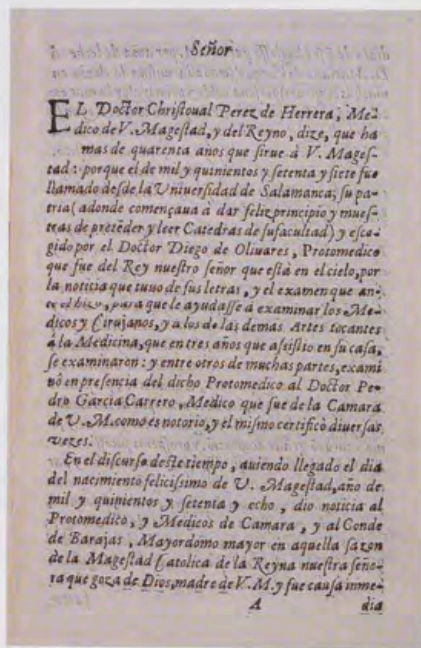 Señor
EL Doctor Christoual Perez de Herrera, Me-
dico de V. Magestad, y del Reyno, dize, que ha
mas de quarenta años que sirue à V. Mages-
tad: porque el de mil y quinientos y setenta y siete fue
llamado desde la Vniuersidad de Salamanca, su pa-
tria (adonde començaua à dar feliz principio y mues-
tras de preteder y leer Catedras de su facultad) y esco-
gido por el Doctor Diego de Oliuares, Protomedico
que fue del Rey nuestro señor que està en el cielo, por
la noticia que tuuo de sus letras, y el examen que an-
te el hizo, para que le ayudasse à examinar los Me-
dicos y Cirujanos, y a los de las demas Artes tocantes
à la Medicina, que en tres años que assistio en su casa,
se examinaron: y entre otros de muchas partes, exami
nò en presencia del dicho Protomedico al Doctor Pe-
dro Garcia Carrero, Medico que fue de la Camara
de V. M. como es notorio, y el mismo certificò diuersas
vezes.
En el discurso deste tiempo, auiendo llegado el dia
del nacimiento felicissimo de V. Magestad, año de
mil y quinientos y setenta y ocho, dio noticia al
Protomedico, y Medicos de Camara, y al Conde
de Barajas, Mayordomo mayor en aquella sazon
de la Magestad Catolica de la Reyna nuestra seño-
ra que goza de Dios, madre de V. M. y fue causa inme-
A dia